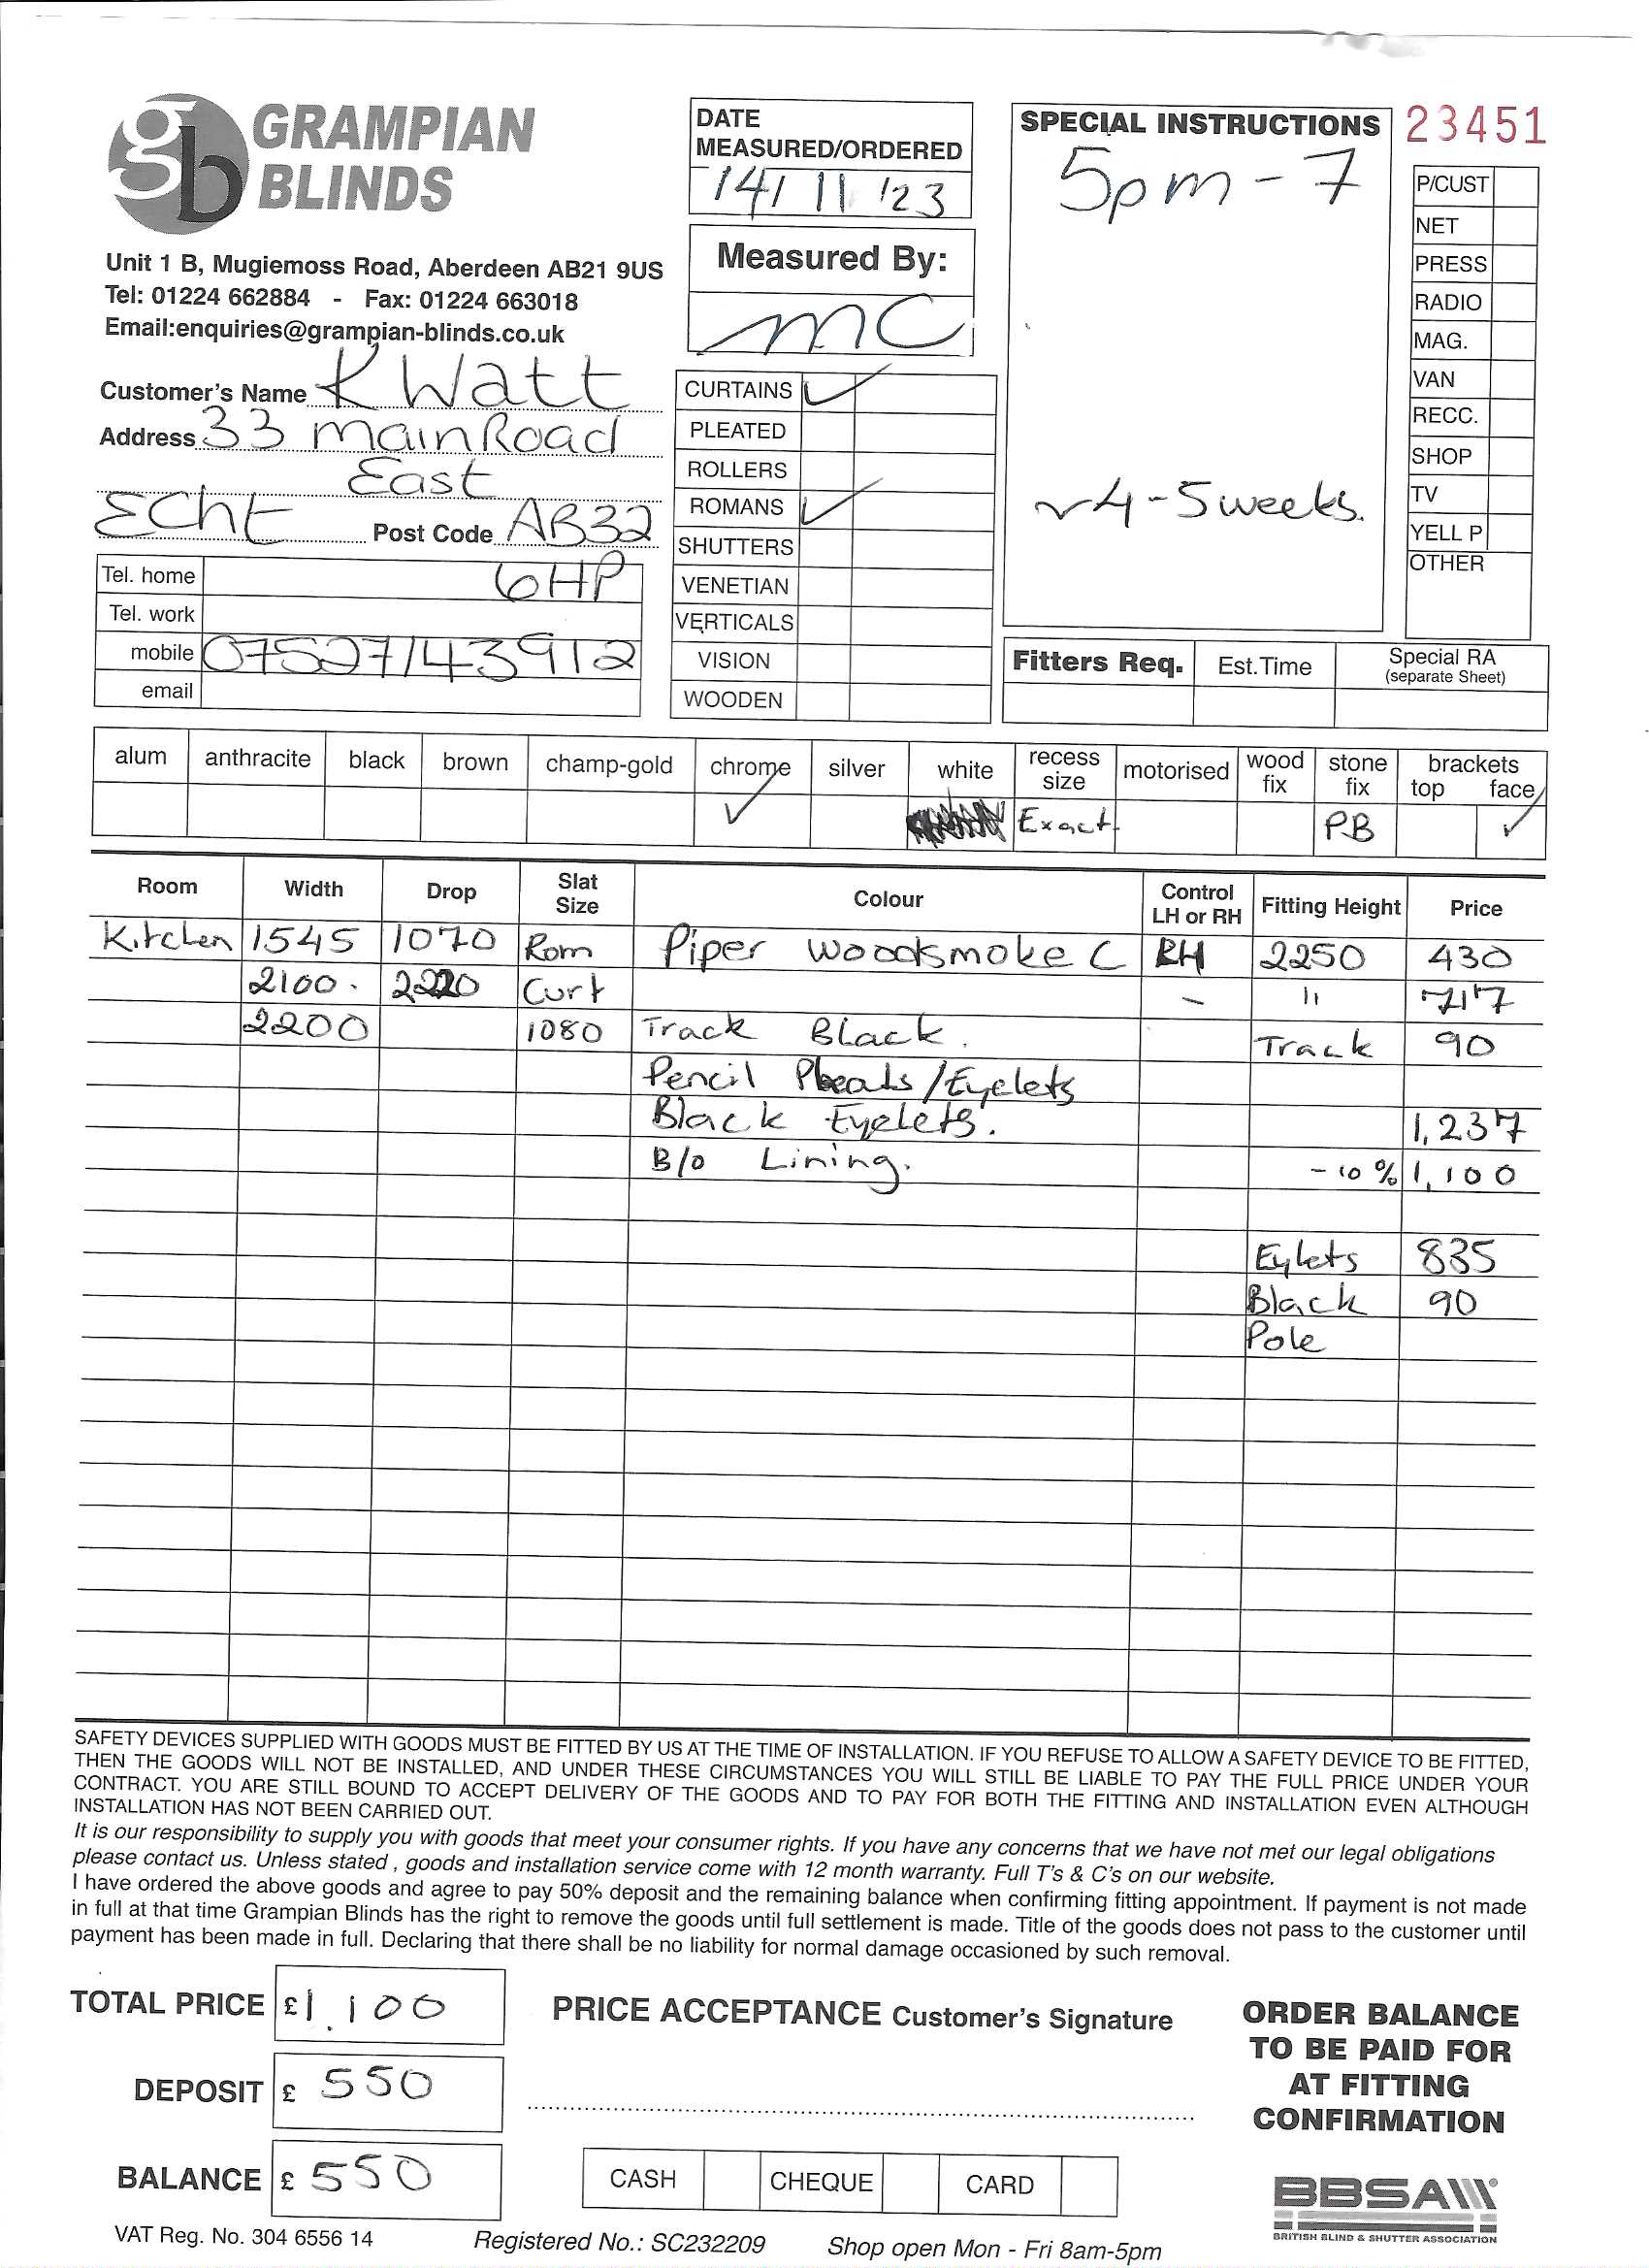 gb GRAMPIAN BLINDS
Unit 1 B, Mugiemoss Road, Aberdeen AB21 9US
Tel: 01224 662884 - Fax: 01224 663018
Email:enquiries@grampian-blinds.co.uk
Customer's Name K Watt
Address 33 Main Road
East
Echt Post Code AB32
6HP
Tel. home
Tel. work
mobile 07527143912
email
DATE
MEASURED/ORDERED
14/ 11 '23
Measured By:
MC
CURTAINS ✓
PLEATED
ROLLERS
ROMANS ✓
SHUTTERS
VENETIAN
VERTICALS
VISION
WOODEN
SPECIAL INSTRUCTIONS
5pm - 7
~4-5 weeks.
23451
P/CUST
NET
PRESS
RADIO
MAG.
VAN
RECC.
SHOP
TV
YELL P
OTHER
Fitters Req. Est.Time Special RA
(separate Sheet)
alum anthracite black brown champ-gold chrome silver white recess size motorised wood fix stone fix brackets top face
✓ Exact. PB ✓
Room Width Drop Slat Size Colour Control LH or RH Fitting Height Price
Kitchen 1545 1070 Rom Piper Woodsmoke C RH 2250 430
2100. 2220 Curt - " 717
2200 1080 Track Black. Track 90
Pencil Pleats/Eyelets
Black Eyelets. 1,237
B/o Lining. -10% 1,100
Eylets 835
Black 90
Pole
SAFETY DEVICES SUPPLIED WITH GOODS MUST BE FITTED BY US AT THE TIME OF INSTALLATION. IF YOU REFUSE TO ALLOW A SAFETY DEVICE TO BE FITTED,
THEN THE GOODS WILL NOT BE INSTALLED, AND UNDER THESE CIRCUMSTANCES YOU WILL STILL BE LIABLE TO PAY THE FULL PRICE UNDER YOUR
CONTRACT. YOU ARE STILL BOUND TO ACCEPT DELIVERY OF THE GOODS AND TO PAY FOR BOTH THE FITTING AND INSTALLATION EVEN ALTHOUGH
INSTALLATION HAS NOT BEEN CARRIED OUT.
It is our responsibility to supply you with goods that meet your consumer rights. If you have any concerns that we have not met our legal obligations
please contact us. Unless stated , goods and installation service come with 12 month warranty. Full T's & C's on our website.
I have ordered the above goods and agree to pay 50% deposit and the remaining balance when confirming fitting appointment. If payment is not made
in full at that time Grampian Blinds has the right to remove the goods until full settlement is made. Title of the goods does not pass to the customer until
payment has been made in full. Declaring that there shall be no liability for normal damage occasioned by such removal.
TOTAL PRICE £1,100
DEPOSIT £ 550
BALANCE £ 550
PRICE ACCEPTANCE Customer's Signature
CASH CHEQUE CARD
ORDER BALANCE
TO BE PAID FOR
AT FITTING
CONFIRMATION
BBSA
BRITISH BLIND & SHUTTER ASSOCIATION
VAT Reg. No. 304 6556 14 Registered No.: SC232209 Shop open Mon - Fri 8am-5pm